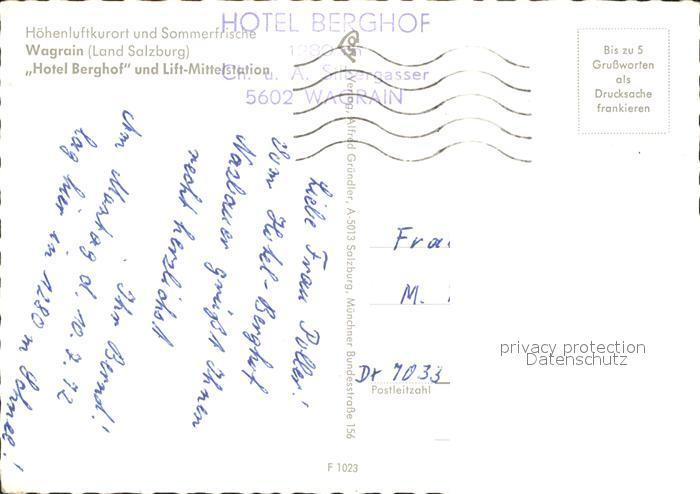 Höhenluftkurort und Sommerfrische
Wagrain (Land Salzburg)
„Hotel Berghof" und Lift-Mittelstation
HOTEL BERGHOF
1280 m
Ch. u. A.
5602 WAGRAIN
Bis zu 5
Grußworten
als
Drucksache
frankieren
Liebe Frau
Vom Hotel-Berghof
grüßt Ihnen
recht herzlichst
Ihr Bernd!
Am Montag d. 10.7.72
lag hier in 1280 m Schnee!
Verlag: Alfred Gründler, A 5013 Salzburg, Münchner Bundesstraße 156
Frau
M.
7033
Postleitzahl
F 1023
privacy protection
Datenschutz